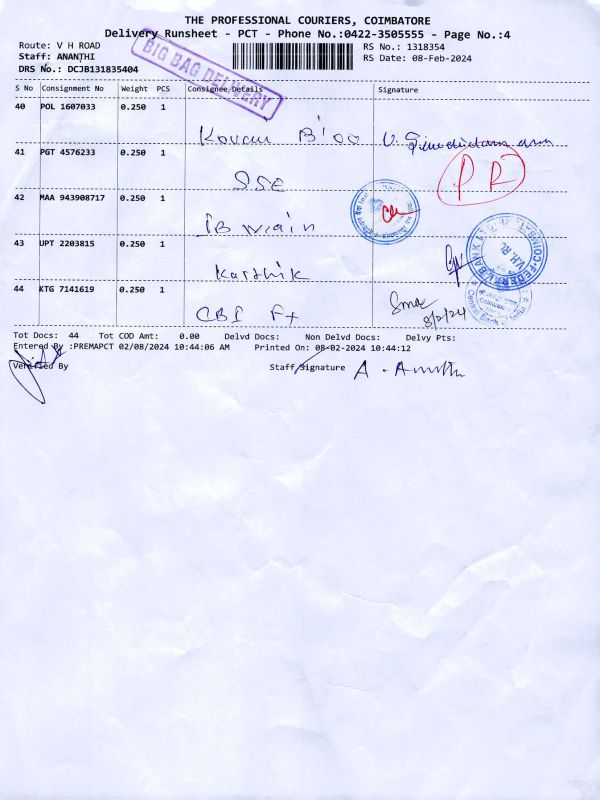 THE PROFESSIONAL COURIERS, COIMBATORE
Delivery Runsheet - PCT - Phone No.:0422-3505555 - Page No.:4
Route: V H ROAD RS No.: 1318354
Staff: ANANTHI RS Date: 08-Feb-2024
DRS No.: DCJB131835404
BIG BAG DELIVERY
S No Consignment No Weight PCS Consignee Details Signature
40 POL 1607033 0.250 1
Kovai
41 PGT 4576233 0.250 1
SSE PR
42 MAA 943908717 0.250 1
IB main
43 UPT 2203815 0.250 1
Karthik
44 KTG 7141619 0.250 1
CBI Ft 8/2/24
Tot Docs: 44 Tot COD Amt: 0.00 Delvd Docs: Non Delvd Docs: Delvy Pts:
Entered By :PREMAPCT 02/08/2024 10:44:06 AM Printed On: 08-02-2024 10:44:12
Verified By Staff Signature